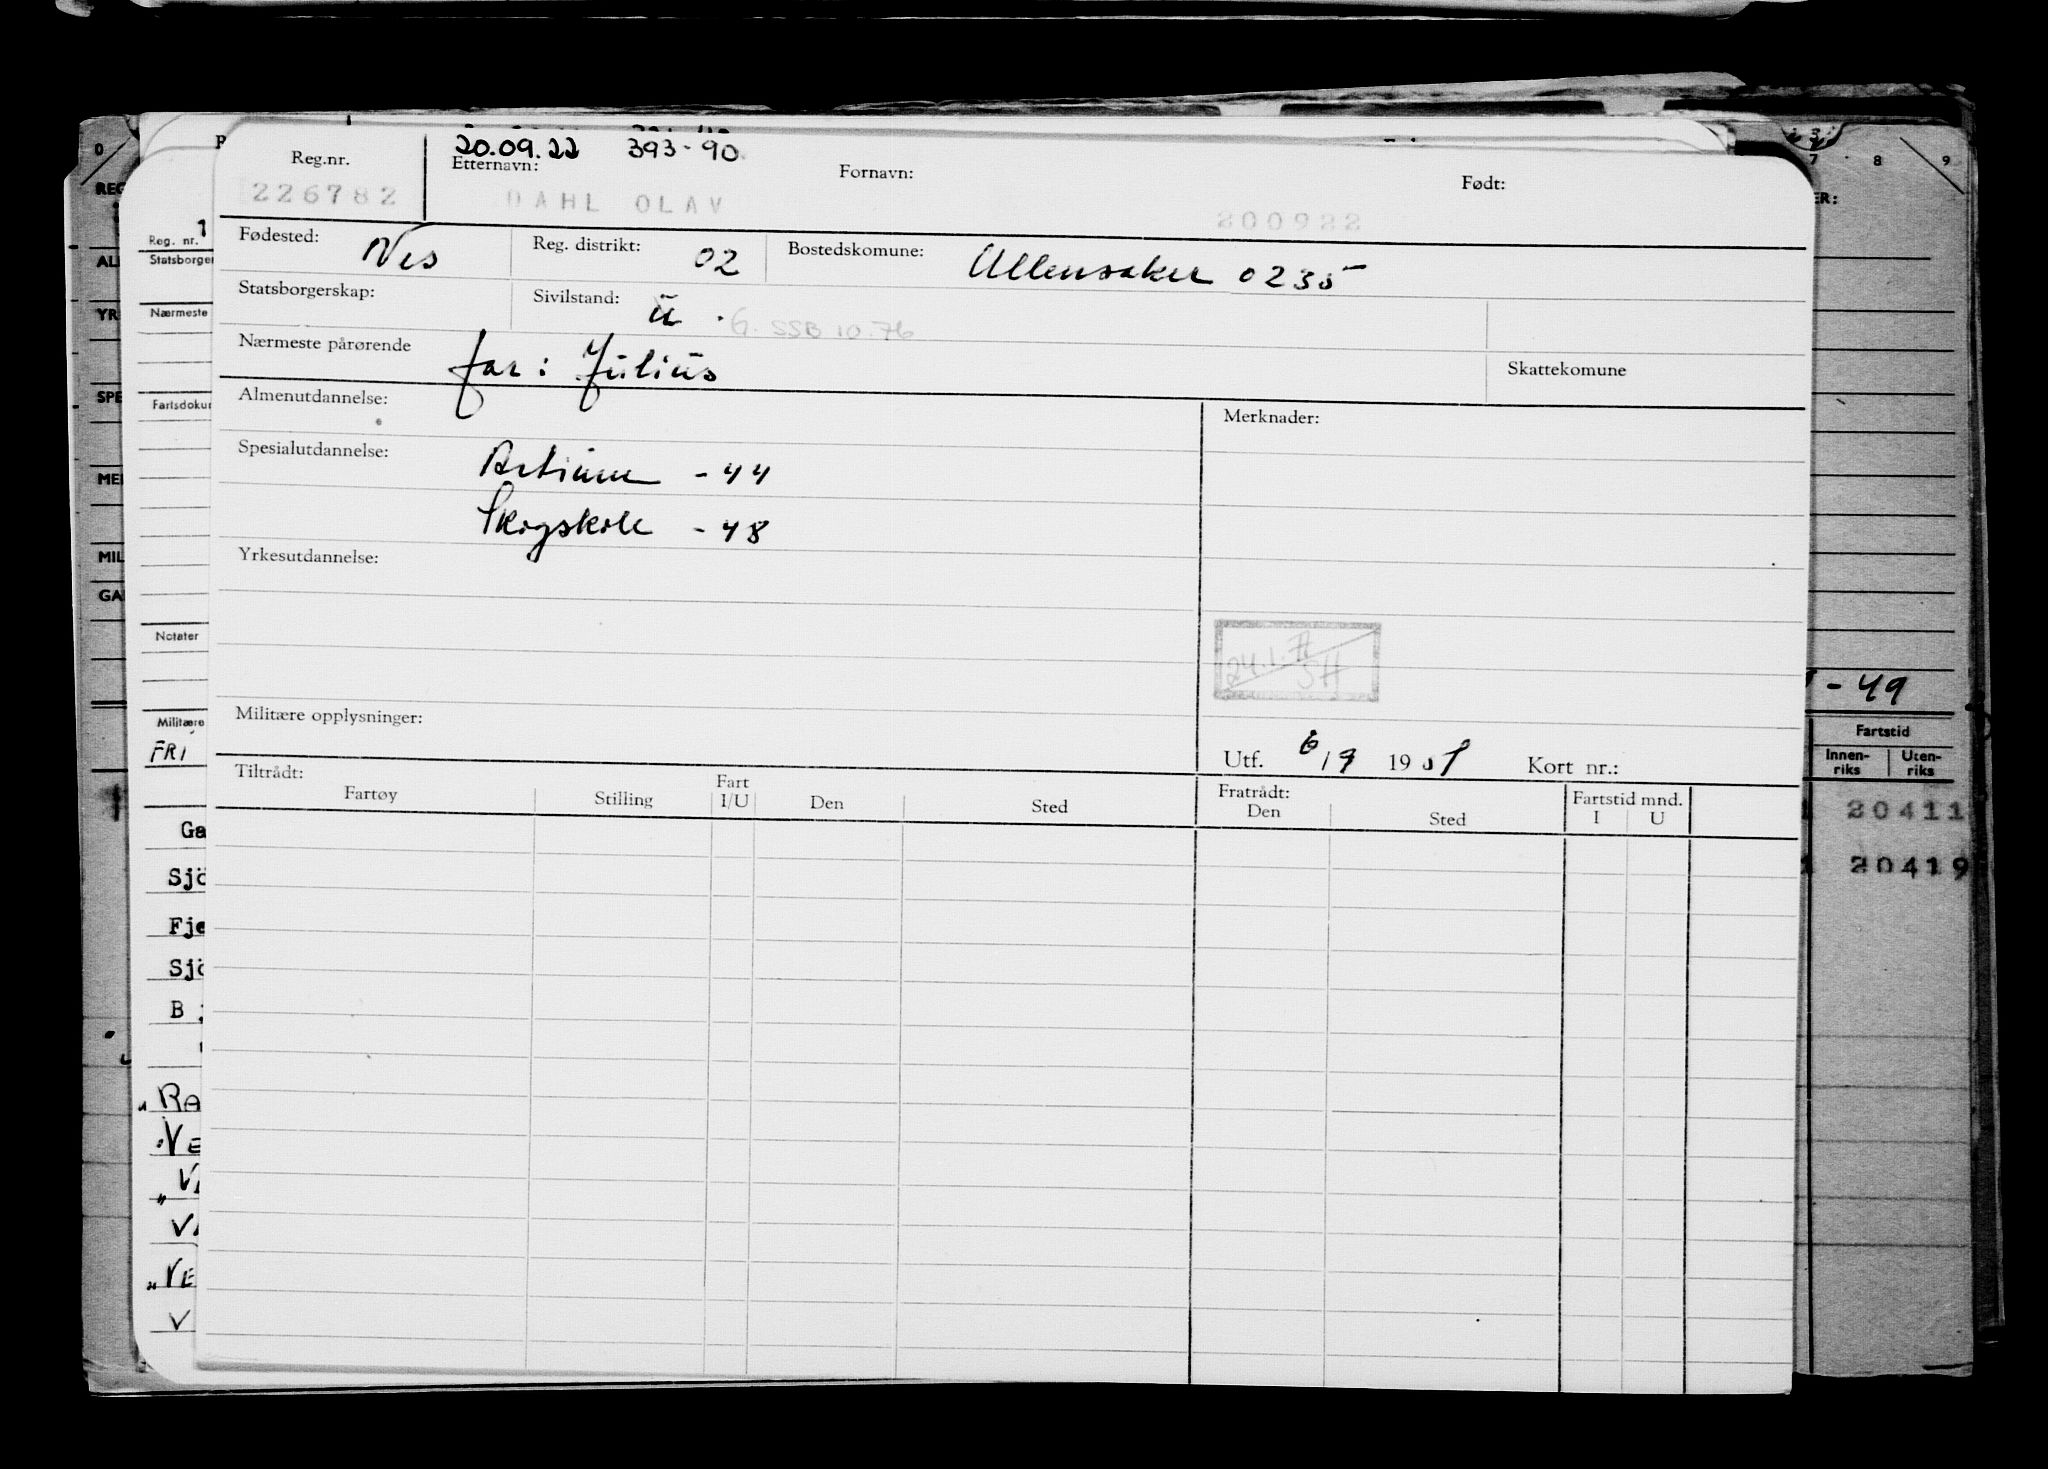 20.09.22 393-90
Reg.nr. Etternavn: Fornavn: Født:
226782 DAHL OLAV 200922
Fødested: Nes Reg. distrikt: 02 Bostedskomune: Ullensaker 0235
Statsborgerskap: Sivilstand: ü . G. SSB 10.76
Nærmeste pårørende far: Julius Skattekomune
Almenutdannelse: Merknader:
Spesialutdannelse: Artium - 44
Skogskole - 48
Yrkesutdannelse:
24.1.77 SH
Militære opplysninger:
Utf. 6/9 19 Kort nr.:
Tiltrådt: Fratrådt:
Fartøy Stilling Fart I/U Den Sted Den Sted Fartstid mnd. I U
0
REG
ALI
YR
SPE
MEI
MIL
GA
Reg. nr. 1
Statsborger
Nærmeste
Fartsdokur
Notater
Militære
FRI
Ga
Sjö
Fje
Sjö
B
" RA
VE
" VA
VA
" VE
V
7 8 9
ER:
- 49
Fartstid
Innen-riks Uten-riks
1 20411
1 20419